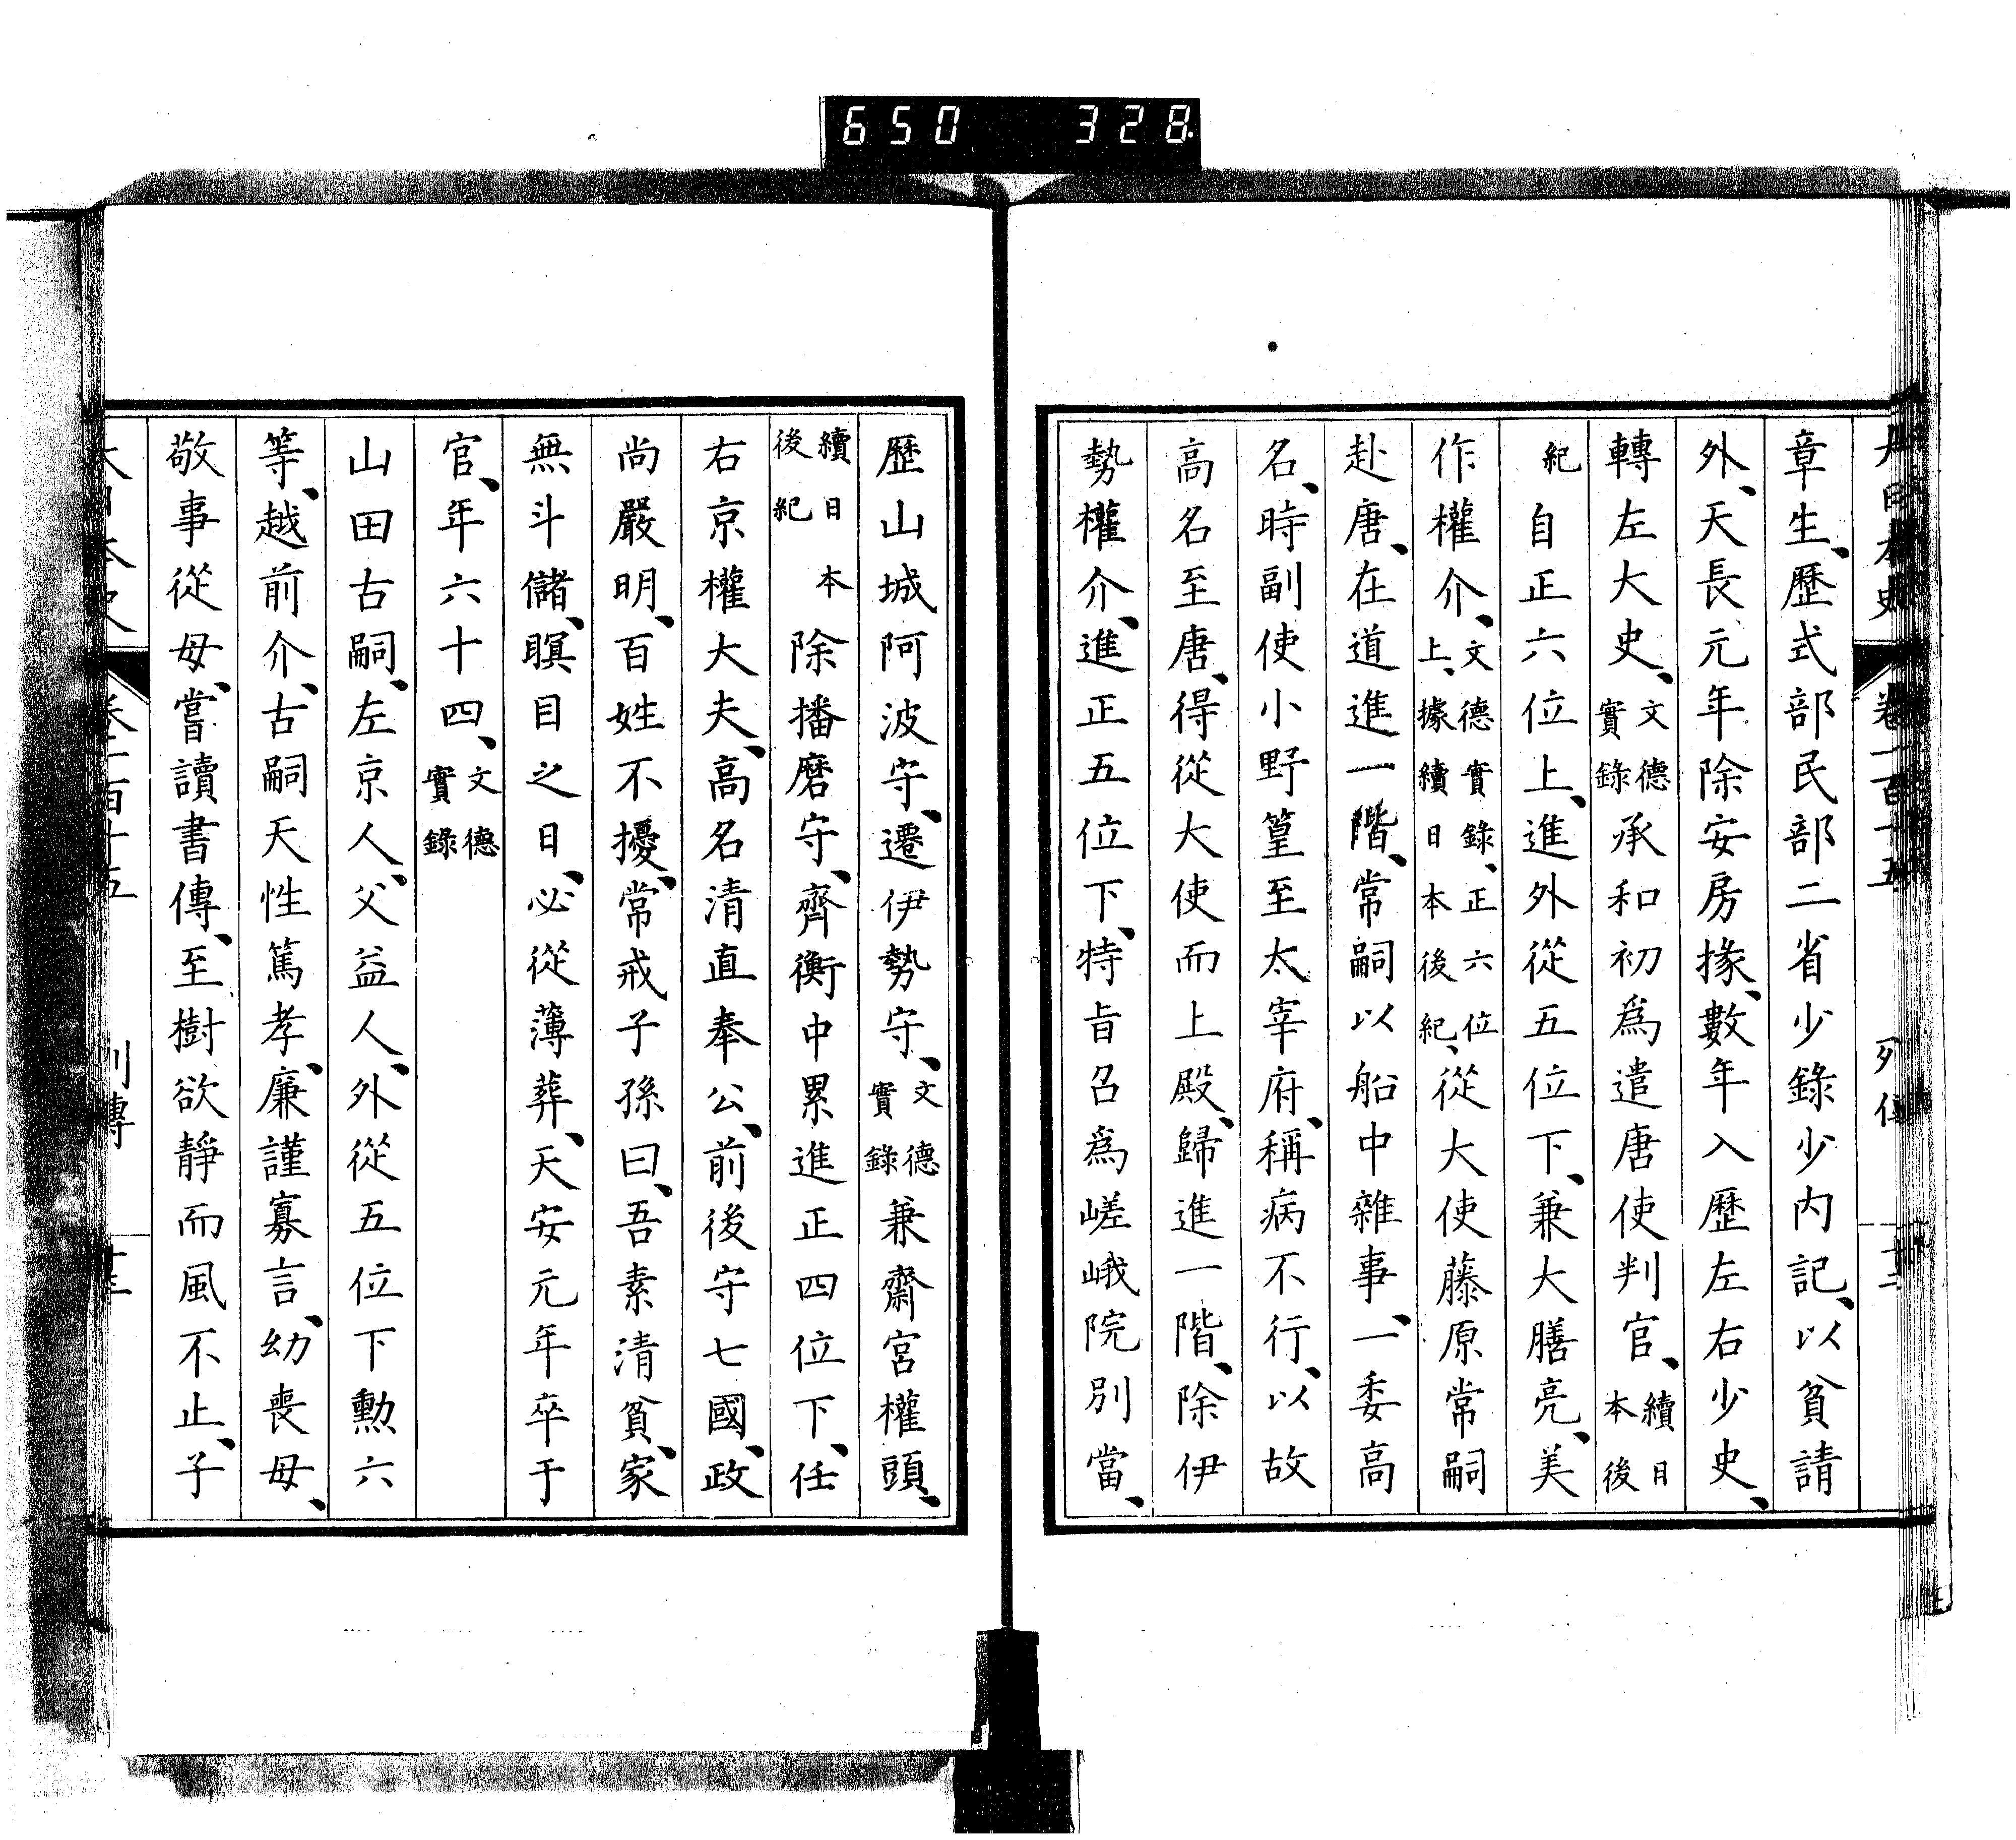 650 328
章生、歷式部民部二省少錄少内記、以貧請
外、天長元年除安房掾、數年入歷左右少史、
轉左大史、文德實錄承和初爲遣唐使判官、續日本後
紀自正六位上、進外從五位下、兼大膳亮、美
作權介、文德實錄、正六位上、據續日本後紀、從大使藤原常嗣
赴唐、在道進一階、常嗣以船中雜事、一委高
名、時副使小野篁至太宰府、稱病不行、以故
高名至唐、得從大使而上殿、歸進一階、除伊
勢權介、進正五位下、特旨召爲嵯峨院別當、
歷山城阿波守、遷伊勢守、文德實錄兼齋宮權頭、
續日本後紀除播磨守、齊衡中累進正四位下、任
右京權大夫、高名清直奉公、前後守七國、政
尚嚴明、百姓不擾、常戒子孫曰、吾素清貧、家
無斗儲、瞑目之日、必從薄葬、天安元年卒于
官、年六十四、文德實錄
山田古嗣、左京人、父益人、外從五位下勳六
等、越前介、古嗣天性篤孝、廉謹寡言、幼喪母、
敬事從母、嘗讀書傳、至樹欲靜而風不止、子